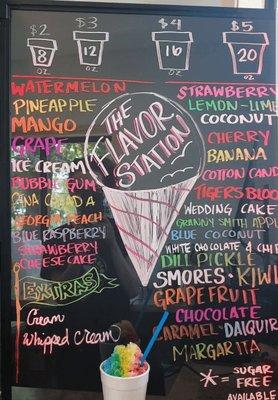 $2 $3 $4 $5
8 12 16 20
OZ OZ OZ OZ
THE
FLAVOR
STATION
WATERMELON
PINEAPPLE
MANGO
GRAPE
ICE CREAM
BUBBLE GUM
PINA COLADA
GEORGIA PEACH
BLUE RASPBERRY
STRAWBERRY
CHEESECAKE
EXTRAS
Cream
Whipped Cream
STRAWBERRY
LEMON-LIME
COCONUT
CHERRY
BANANA
COTTON CANDY
TIGERS BLOOD
WEDDING CAKE
GRANNY SMITH APPLE
BLUE COCONUT
WHITE CHOCOLATE & CHIP
DILL PICKLE
SMORES · KIWI
GRAPEFRUIT
CHOCOLATE
CARAMEL · DAIQUIRI
MARGARITA
* = SUGAR
FREE
AVAILABLE